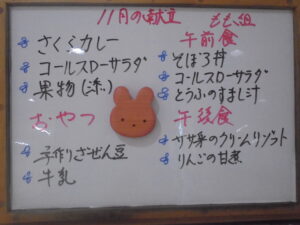 11月の献立
さくらカレー
コールスローサラダ
果物(柿)
おやつ
手作りきなせん豆
牛乳
もも組
午前食
そぼろ丼
コールスローサラダ
とうふのすまし汁
午後食
ササ身のクリームリゾット
りんごの甘煮